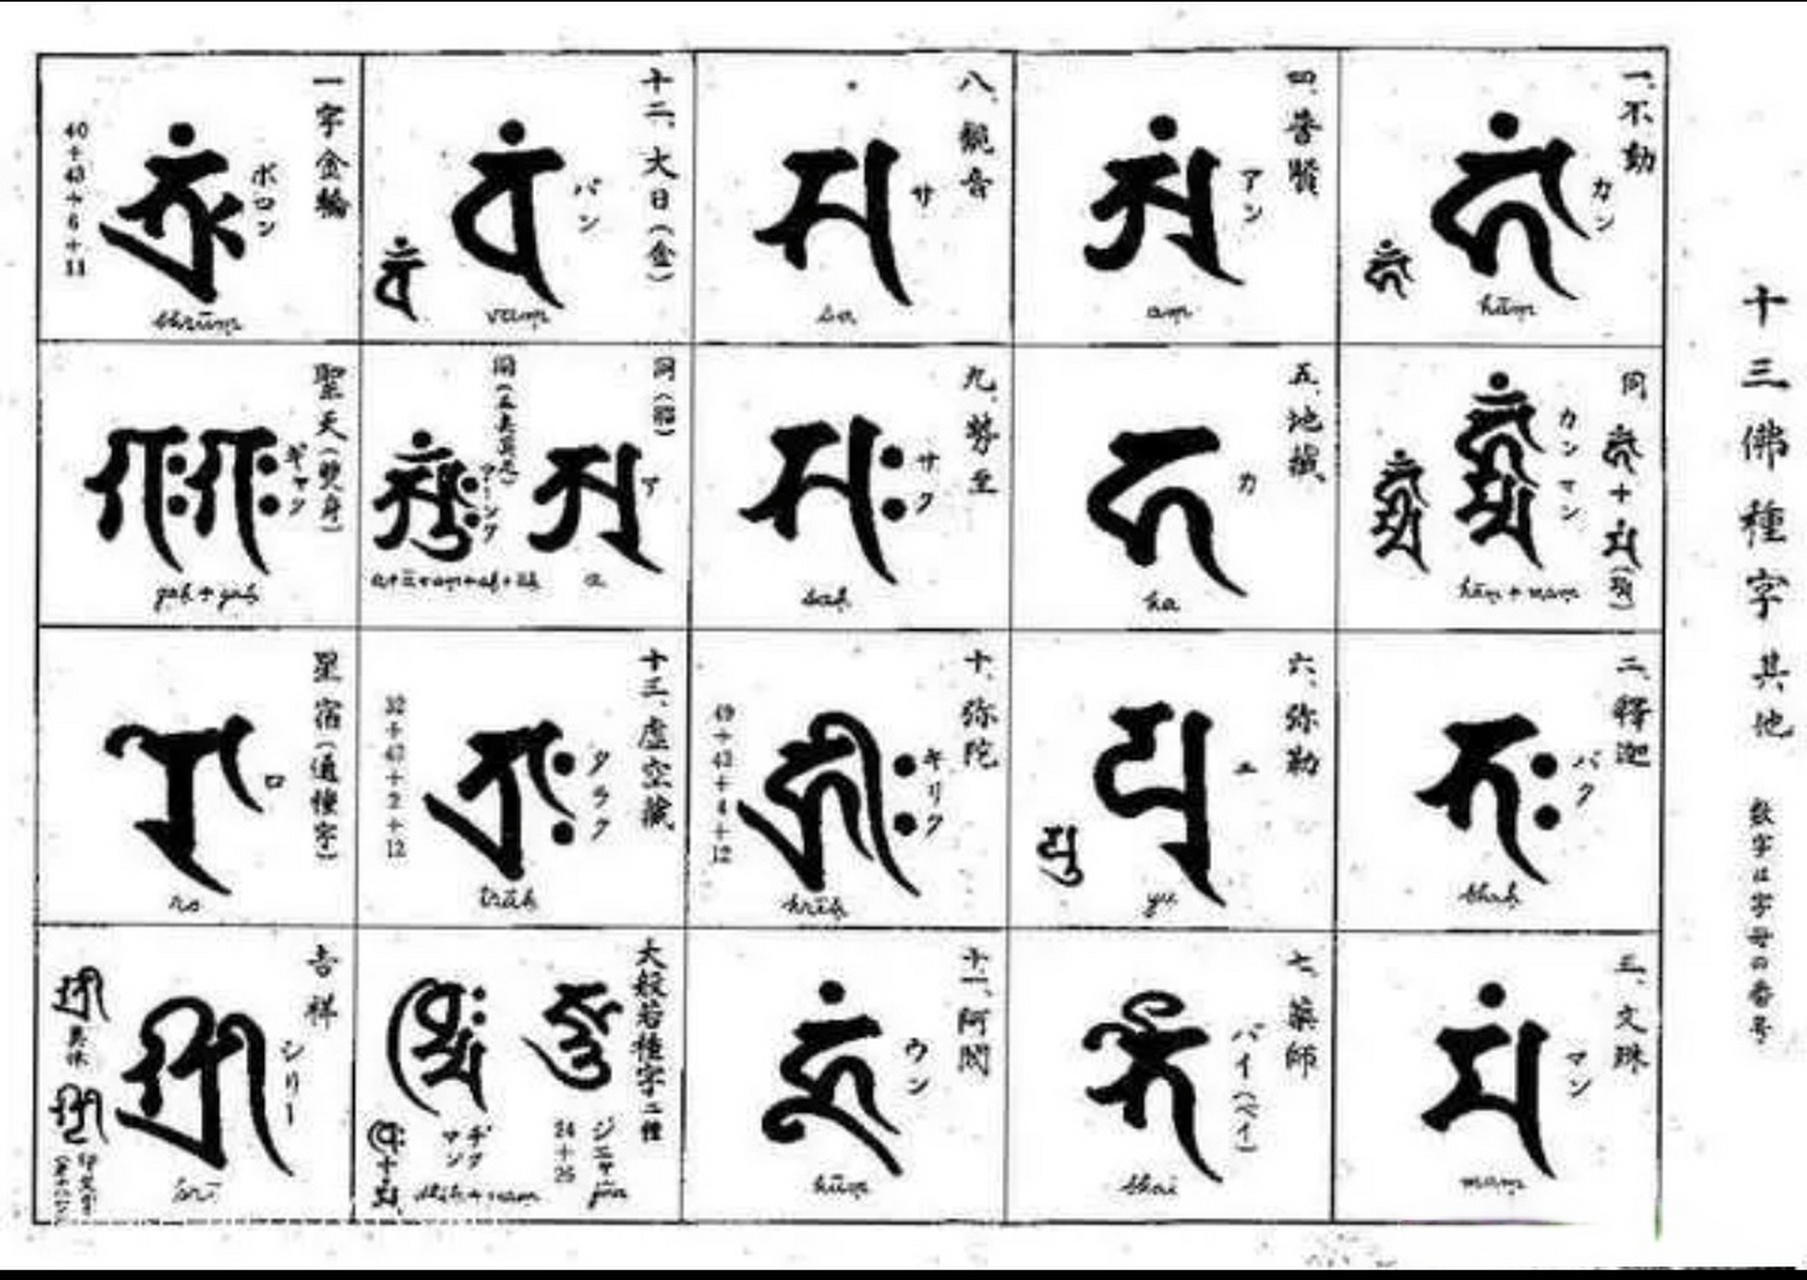 十三佛種字其他 数字は字母の番号
一、不動
カン
hāṃ
同
カンマン
hāṃ+maṃ
二、釋迦
バク
bhaḥ
三、文珠
マン
maṃ
四、普賢
アン
aṃ
五、地蔵
カ
ha
六、弥勒
ユ
yu
七、薬師
バイ(ベイ)
bhai
八、観音
サ
sa
九、勢至
サク
saḥ
十、弥陀
キリク
49+43+4+12
hrīḥ
十一、阿閦
ウン
hūṃ
十二、大日(金)
バン
vaṃ
同
ア
a
同
アーンク
a+ā+aṃ+aḥ+āḥ
十三、虚空蔵
タラク
32+43+2+12
trāḥ
大般若種字二種
ジニャ
24+26
jña
ヂクマン
dhīḥ+maṃ
一字金輪
ボロン
40+43+6+11
bhrūṃ
聖天(雙身)
ギャク
gaḥ+gaḥ
星宿(通種字)
ロ
ro
吉祥
シリー
śrī
異体